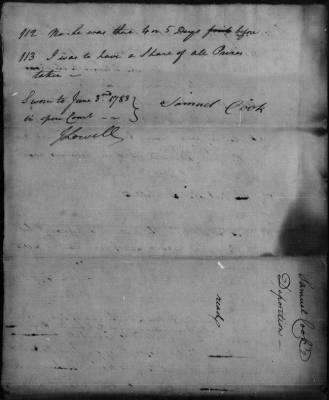 112 No he was there 4 or 5 Days before
113 I was to have a Share of all Prizes
taken —
Sworn to June 3rd 1783
in open Court — —
Samuel Cook
JLowell
Samuel Cook's
Deposition —
read